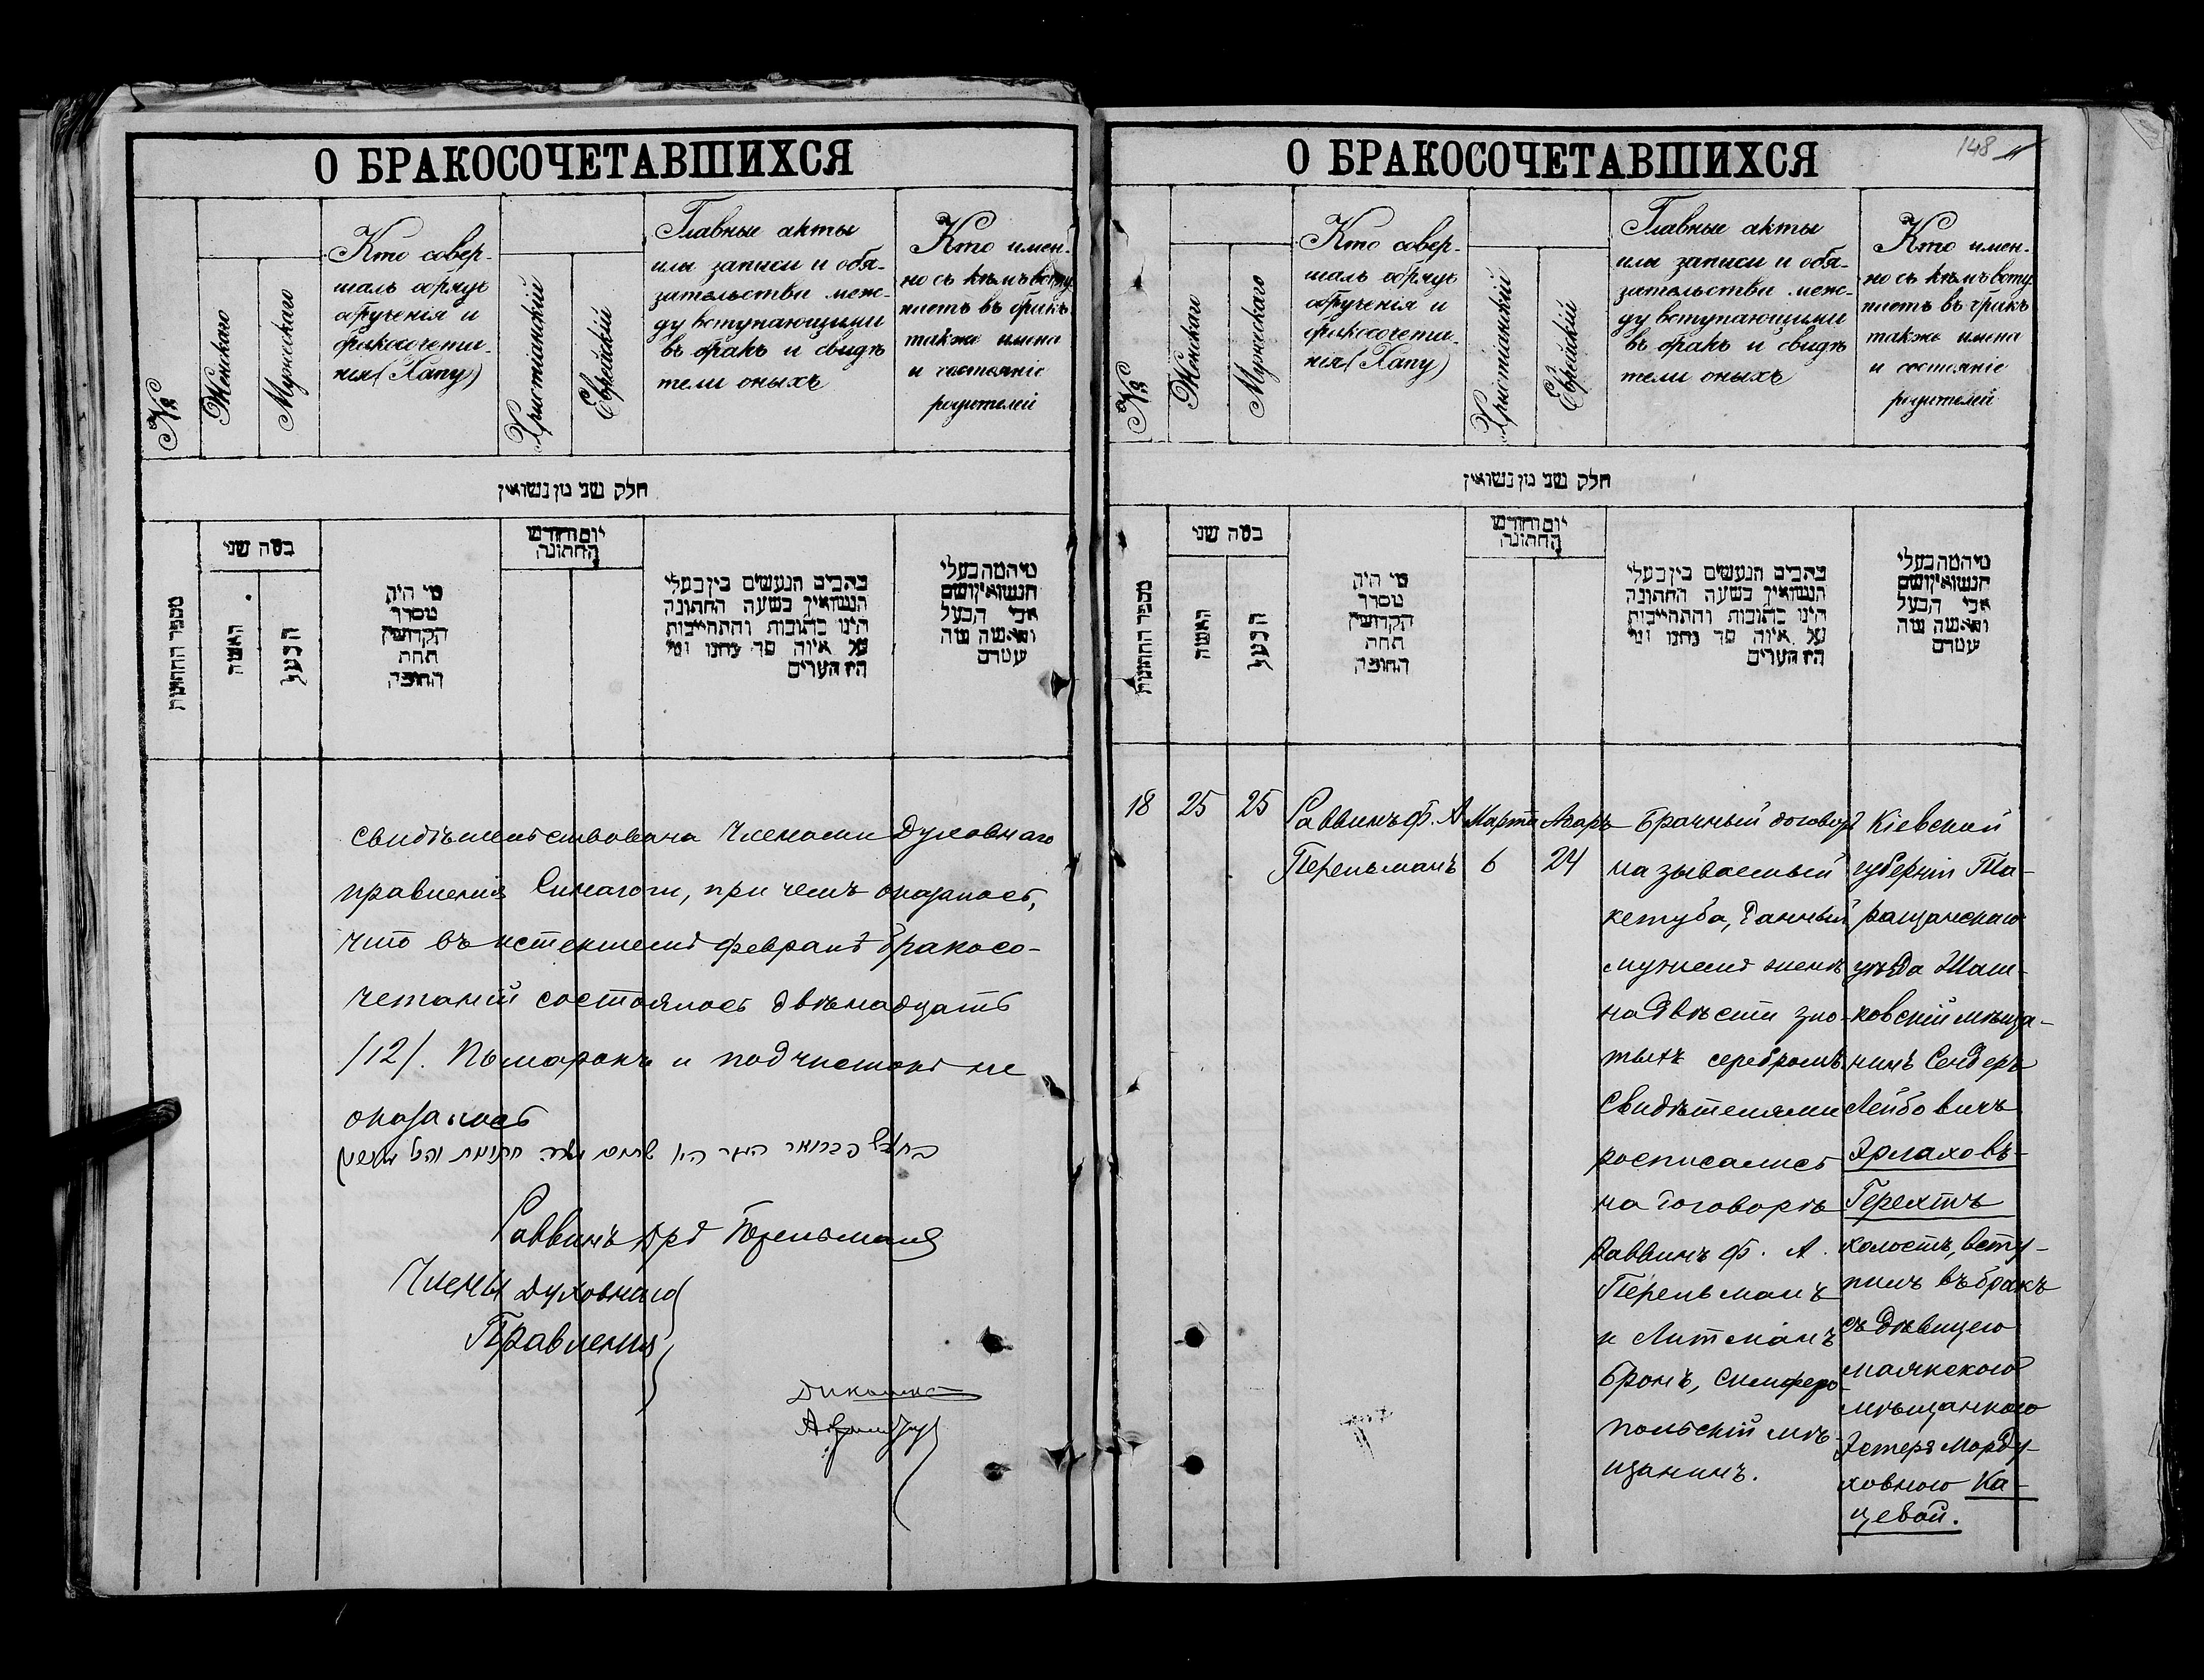 О БРАКОСОЧЕТАВШИХСЯ
№
Женскаго
Мужескаго
Кто совер-
шалъ обрядъ
обрученія и
бракосочета-
нія (Хапу)
Христіанскій
Еврейскій
Главные акты
или записи и обя-
зательства меж-
ду вступающими
въ бракъ и свидѣ
тели оныхъ
Кто имен-
но съ кѣмъ всту-
паетъ въ бракъ
также имена
и состояніе
родителей
חלק שני מן נשואין
מספר החתונות
כמה שני
האשה
הבעל
מי היה
מסדר
הקדושין
תחת
החופה
יום וחודש
החתונה
כתבים הנעשים בין בעלי
הנשואין בשעה החתונה
היינו כתובות והתחייבות
על איזה סך נתנו ומי
היו העדים
מי המה בעלי
הנשואין ושם
אבי הבעל
והאשה מה
עמדם
свидѣтельствована Членами Духовнаго
правленія Синагоги, при чемъ оказалось,
что въ истекшемъ февралѣ бракосо-
четаній состоялось двѣнадцать
/12/. Помарокъ и подчистокъ не
оказалось
Раввинъ Перельманъ
Члены Духовнаго
Правленія
О БРАКОСОЧЕТАВШИХСЯ
148
№
Женскаго
Мужескаго
Кто совер-
шалъ обрядъ
обрученія и
бракосочета-
нія (Хапу)
Христіанскій
Еврейскій
Главные акты
или записи и обя-
зательства меж-
ду вступающими
въ бракъ и свидѣ
тели оныхъ
Кто имен-
но съ кѣмъ всту-
паетъ въ бракъ
также имена
и состояніе
родителей
חלק שני מן נשואין
מספר החתונות
כמה שני
האשה
הבעל
מי היה
מסדר
הקדושין
תחת
החופה
יום וחודש
החתונה
כתבים הנעשים בין בעלי
הנשואין בשעה החתונה
היינו כתובות והתחייבות
על איזה סך נתנו ומי
היו העדים
מי המה בעלי
הנשואין ושם
אבי הבעל
והאשה מה
עמדם
18
25
25
Раввинъ Ф. А
Перельманъ
Марта
6
Адаръ
24
Брачный договоръ
называемый
кетуба, данный
мужемъ женѣ
на двѣсти зло-
тыхъ серебромъ.
Свидѣтелями
росписались
на договорѣ
Раввинъ Ф. А.
Перельманъ
и Литманъ
Бронъ, Симферо-
польскій мѣ-
щанинъ.
Кіевской
губерніи Та-
ращанскаго
уѣзда Жаш-
ковскій мѣща-
нинъ Сендеръ
Лейбовичъ
Эрлаховъ-
Герехтъ
холостъ, всту-
пилъ въ бракъ
съ дѣвицею
маякскою
мѣщанкою
Эстерою Морду-
ховною Ка-
цевой.